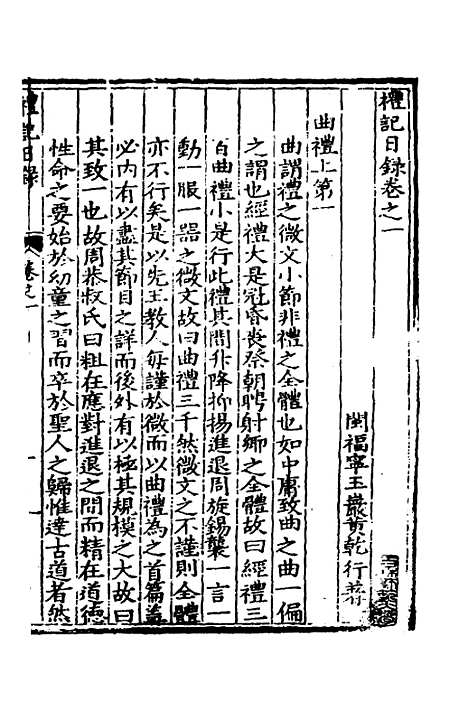 禮記日錄卷之一
閩福寧玉巖黃乾行著
曲禮上第一
曲謂禮之微文小節非禮之全體也如中庸致曲之曲一偏
之謂也經禮大是冠昏喪祭朝聘射鄉之全體故曰經禮三
百曲禮小是行此禮其間升降抑揚進退周旋錫襲一言一
動一服一器之微文故曰曲禮三千然微文之不謹則全體
亦不行矣是以先王教人每謹於微而以曲禮為之首篇蓋
必內有以盡其節目之詳而後外有以極其規模之大故曰
其致一也故周恭叔氏曰粗在應對進退之間而精在道德
性命之要始於幼童之習而卒於聖人之歸惟達古道者然
禮記日錄
卷之一